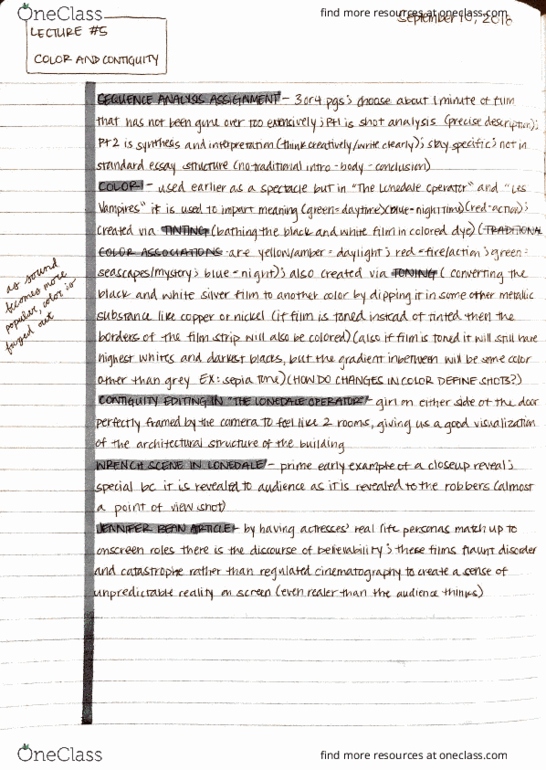 OneClass
find more resources at oneclass.com
September 10, 2018
LECTURE #5
COLOR AND CONTIGUITY
SEQUENCE ANALYSIS ASSIGNMENT - 3 or 4 pgs; choose about 1 minute of film
that has not been gone over too extensively; Pt 1 is shot analysis (precise description);
Pt 2 is synthesis and interpretation (think creatively/write clearly); stay specific; not in
standard essay structure (no traditional intro - body - conclusion)
COLOR - used earlier as a spectacle but in "The Lonedale Operator" and "Les
Vampires" it is used to impart meaning (green=daytime)(blue=nighttime)(red=action);
created via TINTING (bathing the black and white film in colored dye) (TRADITIONAL
COLOR ASSOCIATIONS are yellow/amber = daylight; red=fire/action; green=
seascapes/mystery; blue=night); also created via TONING (converting the
black and white silver film to another color by dipping it in some other metallic
substance like copper or nickel (if film is toned instead of tinted then the
borders of the film strip will also be colored) (also if film is toned it will still have
highest whites and darkest blacks, but the gradient inbetween will be some color
other than grey EX: sepia tone) (HOW DO CHANGES IN COLOR DEFINE SHOTS?)
as sound
becomes more
popular, color is
forged out
CONTIGUITY EDITING IN "THE LONEDALE OPERATOR" - girl on either side of the door
perfectly framed by the camera to feel like 2 rooms, giving us a good visualization
of the architectural structure of the building
WRENCH SCENE IN LONEDALE - prime early example of a closeup reveal;
special bc it is revealed to audience as it is revealed to the robbers (almost
a point of view shot)
JENNIFER BEAN ARTICLE - by having actresses' real life personas match up to
onscreen roles there is the discourse of believability; these films flaunt disorder
and catastrophe rather than regulated cinematography to create a sense of
unpredictable reality on screen (even realer than the audience thinks)
OneClass
find more resources at oneclass.com